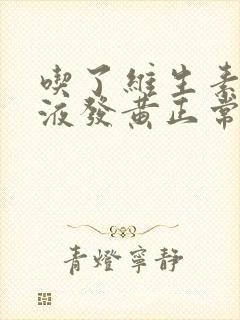 喫了維生素
液發黄正常
青燈寧靜